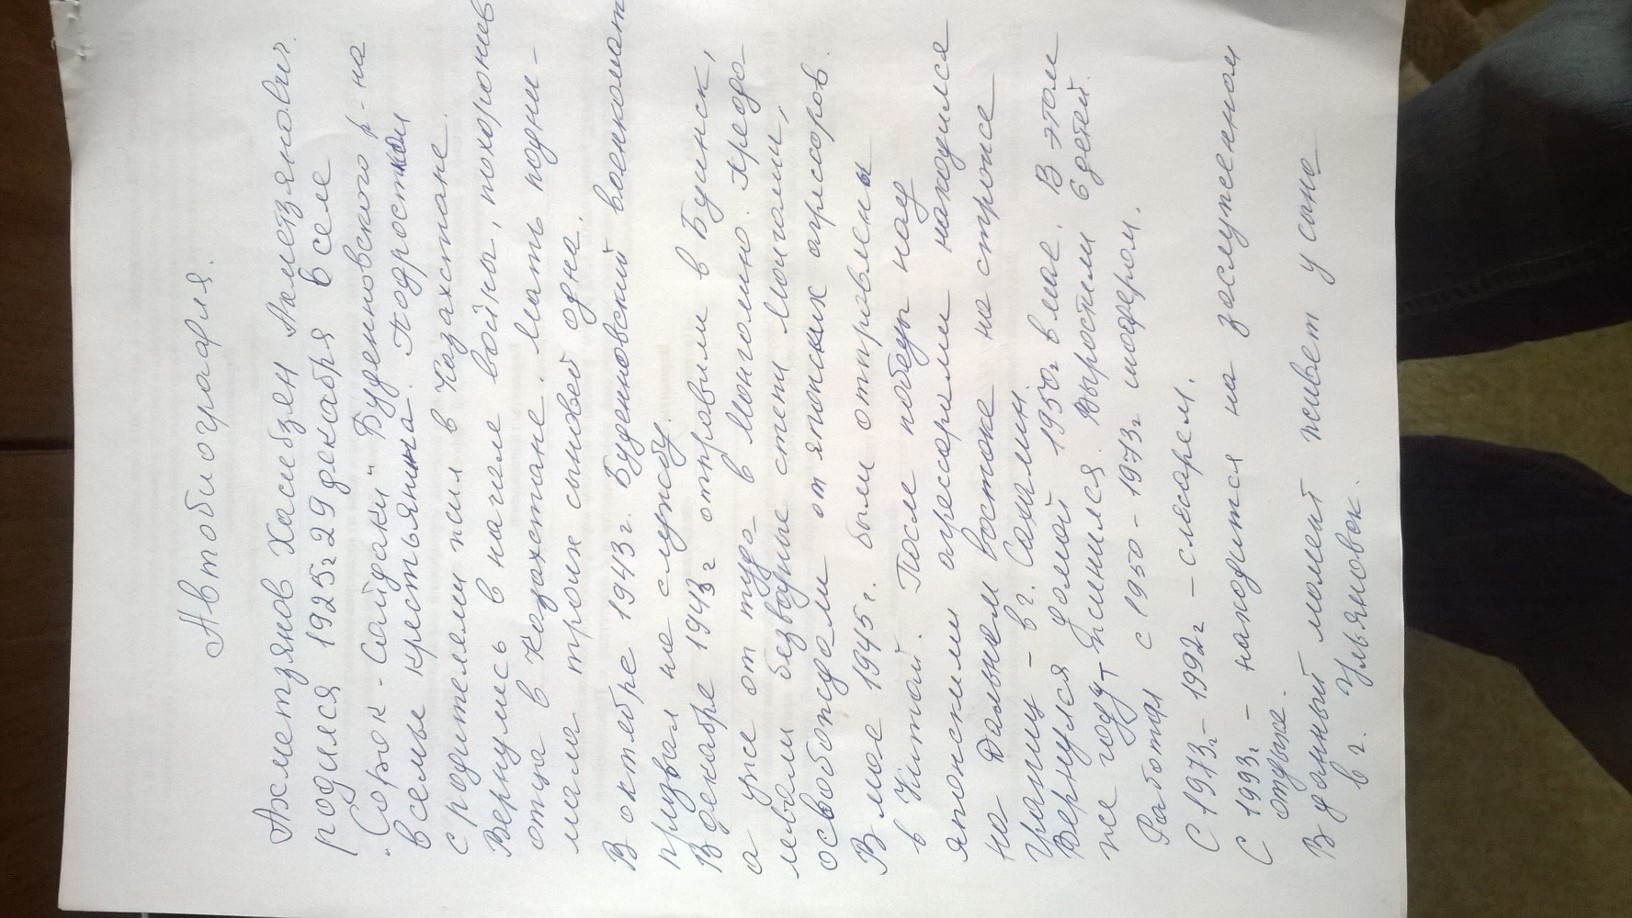 Автобиография.
Ахметзянов Хасебзян Ахметзянович.
родился 1925г 29 декабря в селе
"Сорок-Сайдаки" Буденновского р-на
в семье крестьянина. Подростком
с родителями жил в Казахстане.
Вернулись в начале войны, похоронив
отца в Казахстане. Мать подни-
мала троих сыновей одна.
В октебре 1943г. Буденовский военкомат
призвал на службу.
В декабре 1943г отправили в Буинск,
а уже от туда в Монголию. Преодо
левали безводные степи Монголии,
освобождали от японских агрессоров.
В мае 1945г. были отправлены
в Китай. После победы над
японскими агрессорами находился
на Дальнем востоке на стройке
границ - в г. Сахалин.
Вернулся домой 1950г в мае. В этом
же году женился. Вырастили 6 детей.
Работал с 1950-1973г шофером.
С 1973г-1992г - слесарем.
С 1993г - находится на заслуженном
отдыхе.
В данный момент живет у сына
в г. Ульяновск.